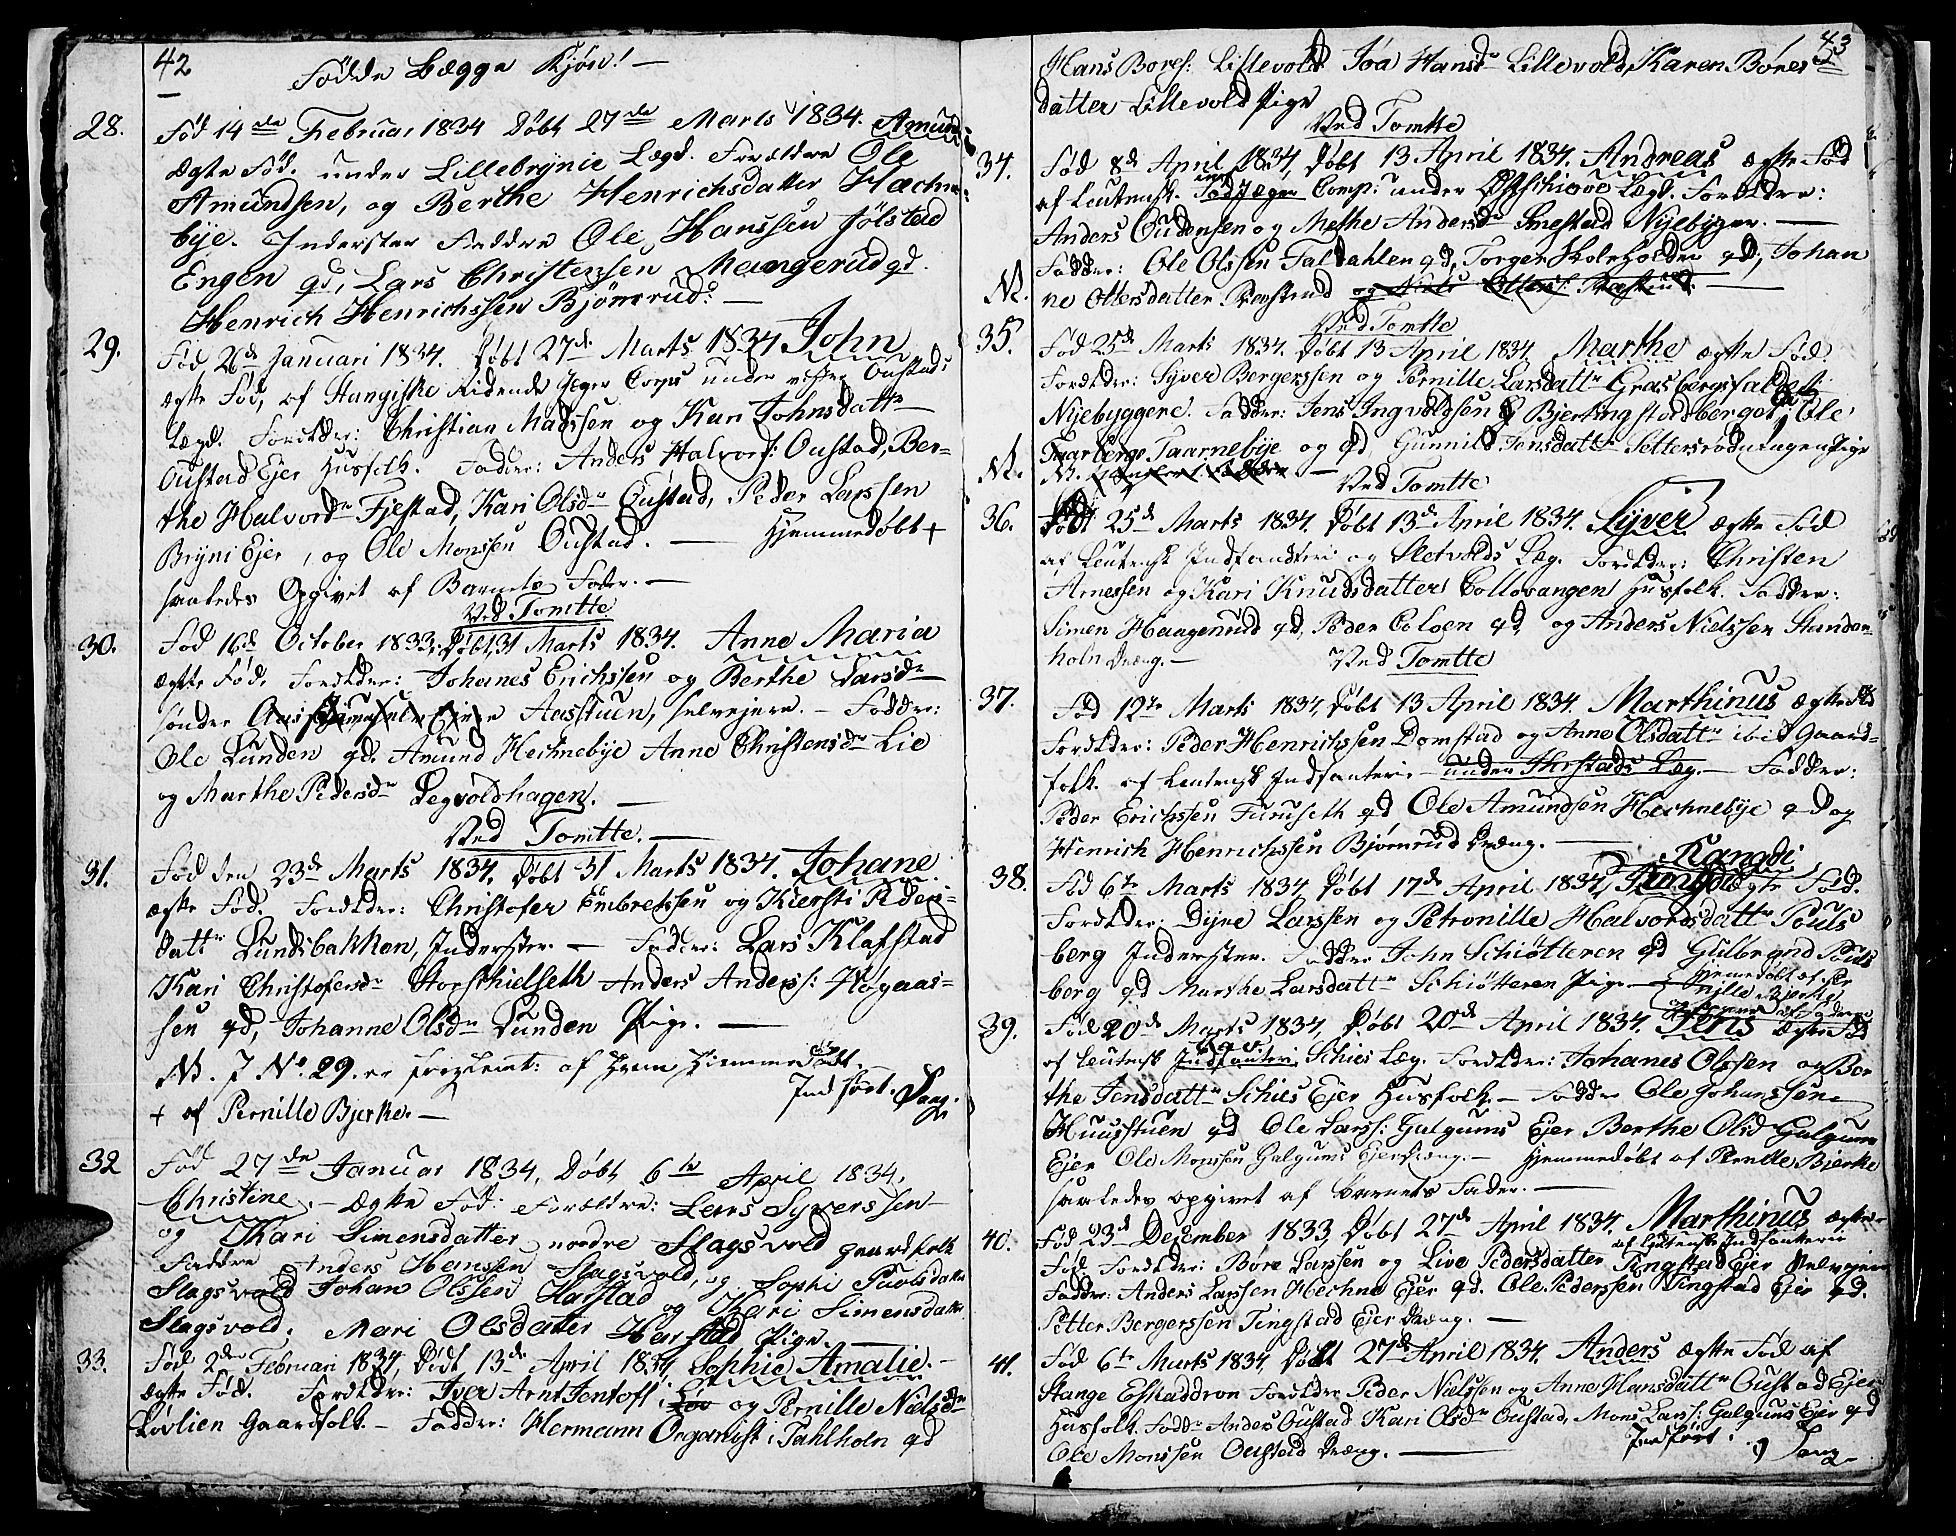 42
Fødde Begge Kjøn! —
28. Fød 14de Februar 1834 Døbt 27de Marts 1834. Amund
Ægte Fød. under Lillebrynie Lægd. Forældre Ole
Amundsen, og Berthe Henrichsdatter Hachne
bye. Inderster Faddre Ole Hanssen Jølstad
Engen gd, Lars Christenssen Mangerud gd.
Henrich Henrichssen Bjørnerud. —
29. Fød 26d Januari 1834. Døbt 27d Marts 1834 John
ægte Fød, af Stangiske Ridende Jeger Corps under Oustad
Lægd. Forældre: Christian Madssen og Kari Johnsdattr
Oustad Ejer Husfolk. Faddre: Anders Halvors: Oustad, Ber-
the Halvordr Fjestad, Kari Olsdr Oustad, Peder Larssen
Bryni Ejer, og Ole Monssen Oustad. — Hjemmedøbt +
saaledes Opgivet af Barnets Fader. —
Ved Tomtte
30. Fød 16d October 1833, Døbt 31 Marts 1834. Anne Maria
ægte Fød. Forældre: Johanes Erichssen og Berthe Larsdr
søndre Aasstuen, selvejere. — Faddre:
Ole Lunden gd. Amund Hechnebye Anne Christensdr Lie
og Marthe Pedersdr Legvoldhagen. —
Ved Tomtte. —
31. Fød den 23d Marts 1834. Døbt 31 Marts 1834. Johane.
ægte Fød. Forældre: Christofer Embretssen og Kiersti Peders-
dattr Lundsbakken, Inderster. — Faddre: Lars Klafstad
Kari Christofersdr Storskielseth Anders Anders: Høgaas-
sen gd, Johanne Olsdr Lunden Pige. —
NB. I No. 29. er Hjemmedøbt
+ af Pernille Bjerke. — Indført. Lang.
32 Fød 27de Januar 1834, Døbt 6te April 1834,
Christine. — Ægte Fød: Forældre: Lars Syverssen
og Kari Simensdatter nordre Slagsvold gaardfolk
Faddre Anders Hanssen Slagsvold, og Sophi Paulsdatter
Slagsvold Johan Olssen Harstad og Kari Simensdatter
Slagsvold, Mari Olsdatter Harstad Pige. —
33. Fød 2den Februari 1834, Døbt 13de April 1834, Sophie Amalie. —
ægte Fød. Forældre: Iver Arnt Jentoft og Pernille Nielsdr
Løvlien Gaardfolk. — Faddre: Hermann Organist i Tahlholn gd
43
Hans Bores: Lillevold Joa Hansdr Lillevold, Karen Børes
datter Lillevold Pige
Ved Tomtte
34. Fød 8d April 1834, Døbt 13 April 1834. Andreas ægte Fød
af Leutensk. Fodjeger Comp: under Lægd. Forældre:
Anders Oudensen og Methe Andersdr Smestad Nyebygger. —
Faddre: Ole Olssen Faldahlen gd, Torger Skoleholder gd, Johan
NB. ne Ottersdatter Præstrud og Niels Otters: Præstrud. —
Ved Tomtte
35. Fød 25d Marts 1834. Døbt 13 April 1834. Marthe ægte Fød
Forældre: Syver Bergerssen og Pernille Larsdattr Grasbergsfaldet
Nyebyggere. Faddre: Jens Ingvoldsen Bjertingstadsberget, Ole
Taarnebye og gd Gunnild Jensdattr Pige
NB. NB. —
Ved Tomtte
36. Født 25d Marts 1834. Døbt 13d April 1834. Syver ægte Fød
af Leutensk Indfandteri og Sletvolds Læg. Forældre: Christen
Arnessen og Kari Knudsdatter Collovangen Husfolk. Faddre:
Simen Haagenrud gd, Peder Coloen gd, og Anders Nielssen Standen-
holn Dreng. —
Ved Tomtte
37. Fød 12te Marts 1834, Døbt 13 April 1834. Marthinus ægte Fød
Forældre: Peder Henrichssen Domstad og Anne Olsdattr ibid Gaard-
folk. af Leutensk Indfanteri — under Læg. — Faddre:
Peder Erichssen Furuseth gd Ole Amundsen Hechnebye gd og
Hinrich Henrichssen Bjørnrud Dreng. —
38. Fød 6te Marts 1834, Døbt 17de April 1834, Rangdi ægte Fød.
Forældre: Dyne Larssen og Petronille Halvorsdattr Pouls
berg Inderster. Faddre John Schiøtteren gd Gulbrand Pouls
berg gd Marthe Larsdattr Schiøtteren Pige — Hjemmedøbt af Per
nille Bjerke
39. Fød 20de Marts 1834, Døbt 20de April 1834. Jens ægte Fød
af Leutensk Indfanteri Schies Læg. Forældre: Johanes Olssen og Ber
the Jensdattr Schies Ejer Husfolk. — Faddre Ole Johanssen
Huusstuen gd Ole Lars: Galgums Ejer Berthe Olsdr Galgums
Ejer Ole Monssen Galgums Ejer Dreng. — Hjemmedøbt af Pernille Bjerke
saaledes opgivet af Barnets Fader. —
40. Fød 23d Desember 1833, Døbt 27de April 1834. Marthinus ægte
af Leutensk Indfanterie
Fød Forældre: Børe Larssen og Live Pedersdatter Tingstad Ejer Selvejere
Faddre: Anders Larssen Hechne Ejer gd. Ole Pederssen Tingstad Ejer gd.
Petter Bergerssen Tingstad Ejer Dreng. —
41. Fød 6te Marts 1834, Døbt 27de April 1834. Anders ægte Fød af
Stange Eskaddron Forældre Peder Nielssen og Anne Hansdattr Oustad Ejer
Husfolk. Faddr Anders Oustad Kari Olsdr Oustad, Mons Lars: Galgums Ejer gd
Ole Monssen Oustad Dreng. — Indført. Lang